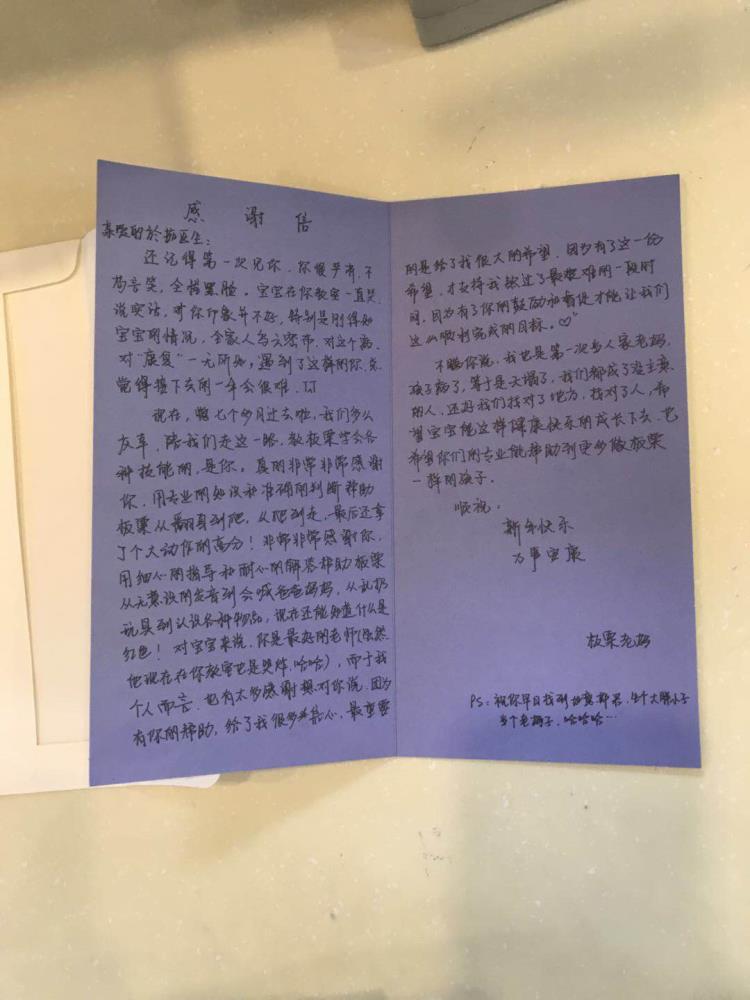 感谢信
亲爱的於 医生：
还记得第一次见你，你很严肃，不
苟言笑，全程黑脸。宝宝在你教室一直哭
说实话，对你印象并不好，特别是刚得知
宝宝的情况，全家人乌云密布，对这个病，
对“康复”一无所知，遇到了这样的你，总
觉得接下去的一年会很难。TJT
现在，整七个多月过去啦，我们多么
庆幸，陪我们走这一段，教板栗学会各
种技能的，是你，真的非常非常感谢
你，用专业的知识和准确的判断帮助
板栗从翻身到爬，从爬到走，最后还拿
了个大动作的高分！非常非常感谢你，
用细心的指导和耐心的解答帮助板栗
从无意识的发音到会喊爸爸妈妈，从乱扔
玩具到认识各种物品，现在还能知道什么是
红色！对宝宝来说，你是最好的老师（虽然
他现在在你教室也是哭炸，哈哈），而于我
个人而言，也有太多感谢想对你说，因为
有你的帮助，给了我很多 信心，最重要
的是给了我很大的希望，因为有了这一份
希望，才支撑我熬过了最艰难的一段时
间，因为有了你的鼓励和督促才能让我们
这么顺利完成的目标。♡
不瞒你说，我也是第一次当人家老妈，
孩子病了，等于是天塌了，我们都成了没主意
的人，还好我们找对了地方，找对了人，希
望宝宝能这样健康快乐的成长下去，也
希望你们的专业能帮助到更多像板栗
一样的孩子。
顺祝：
新年快乐
万事宜康
板栗老妈
PS：祝你早日找到 ，生个大胖小子
当个老妈子，哈哈哈…